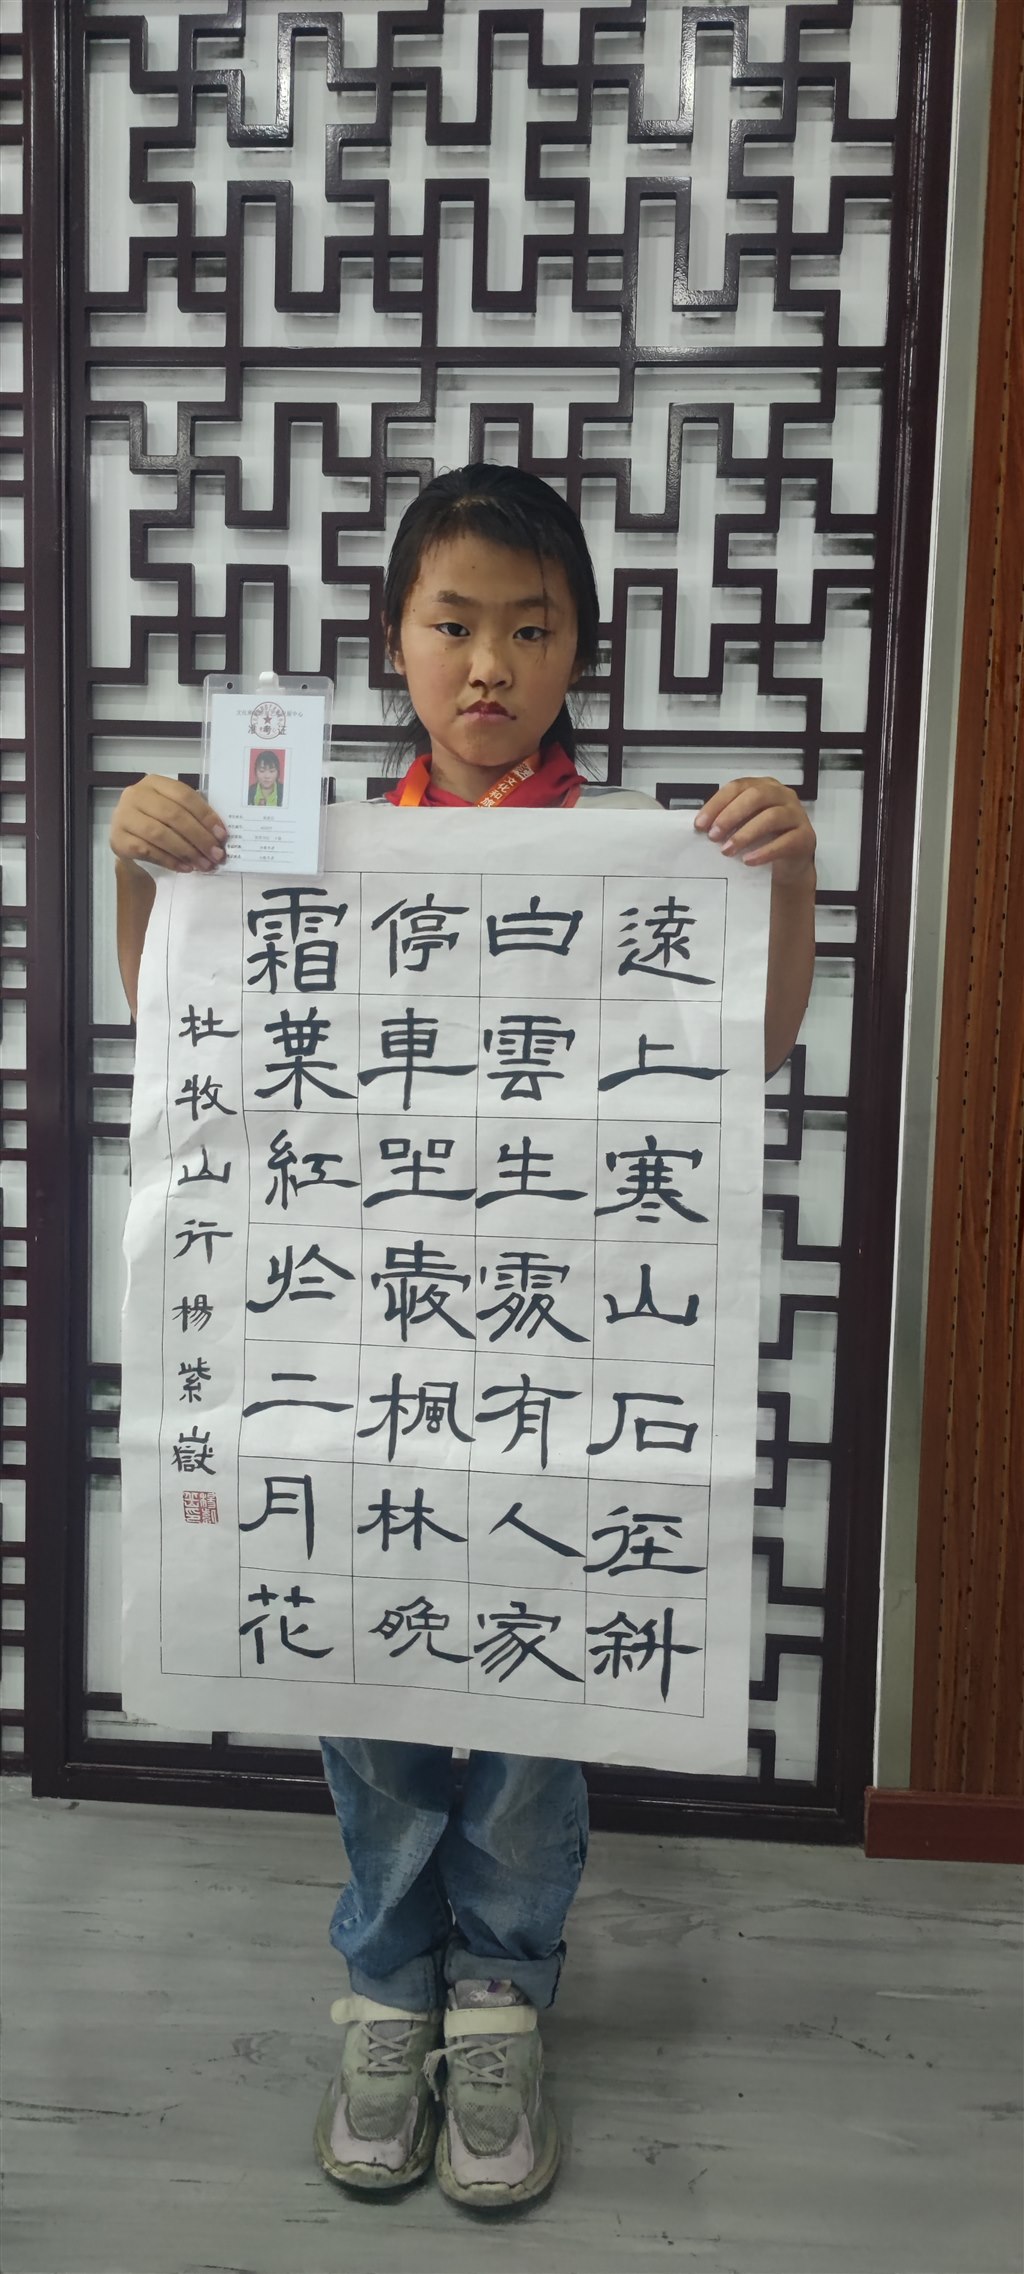 遠上寒山石徑斜
白雲生處有人家
停車坐愛楓林晚
霜葉紅於二月花
杜牧山行楊紫嶽
准考证
文化和旅